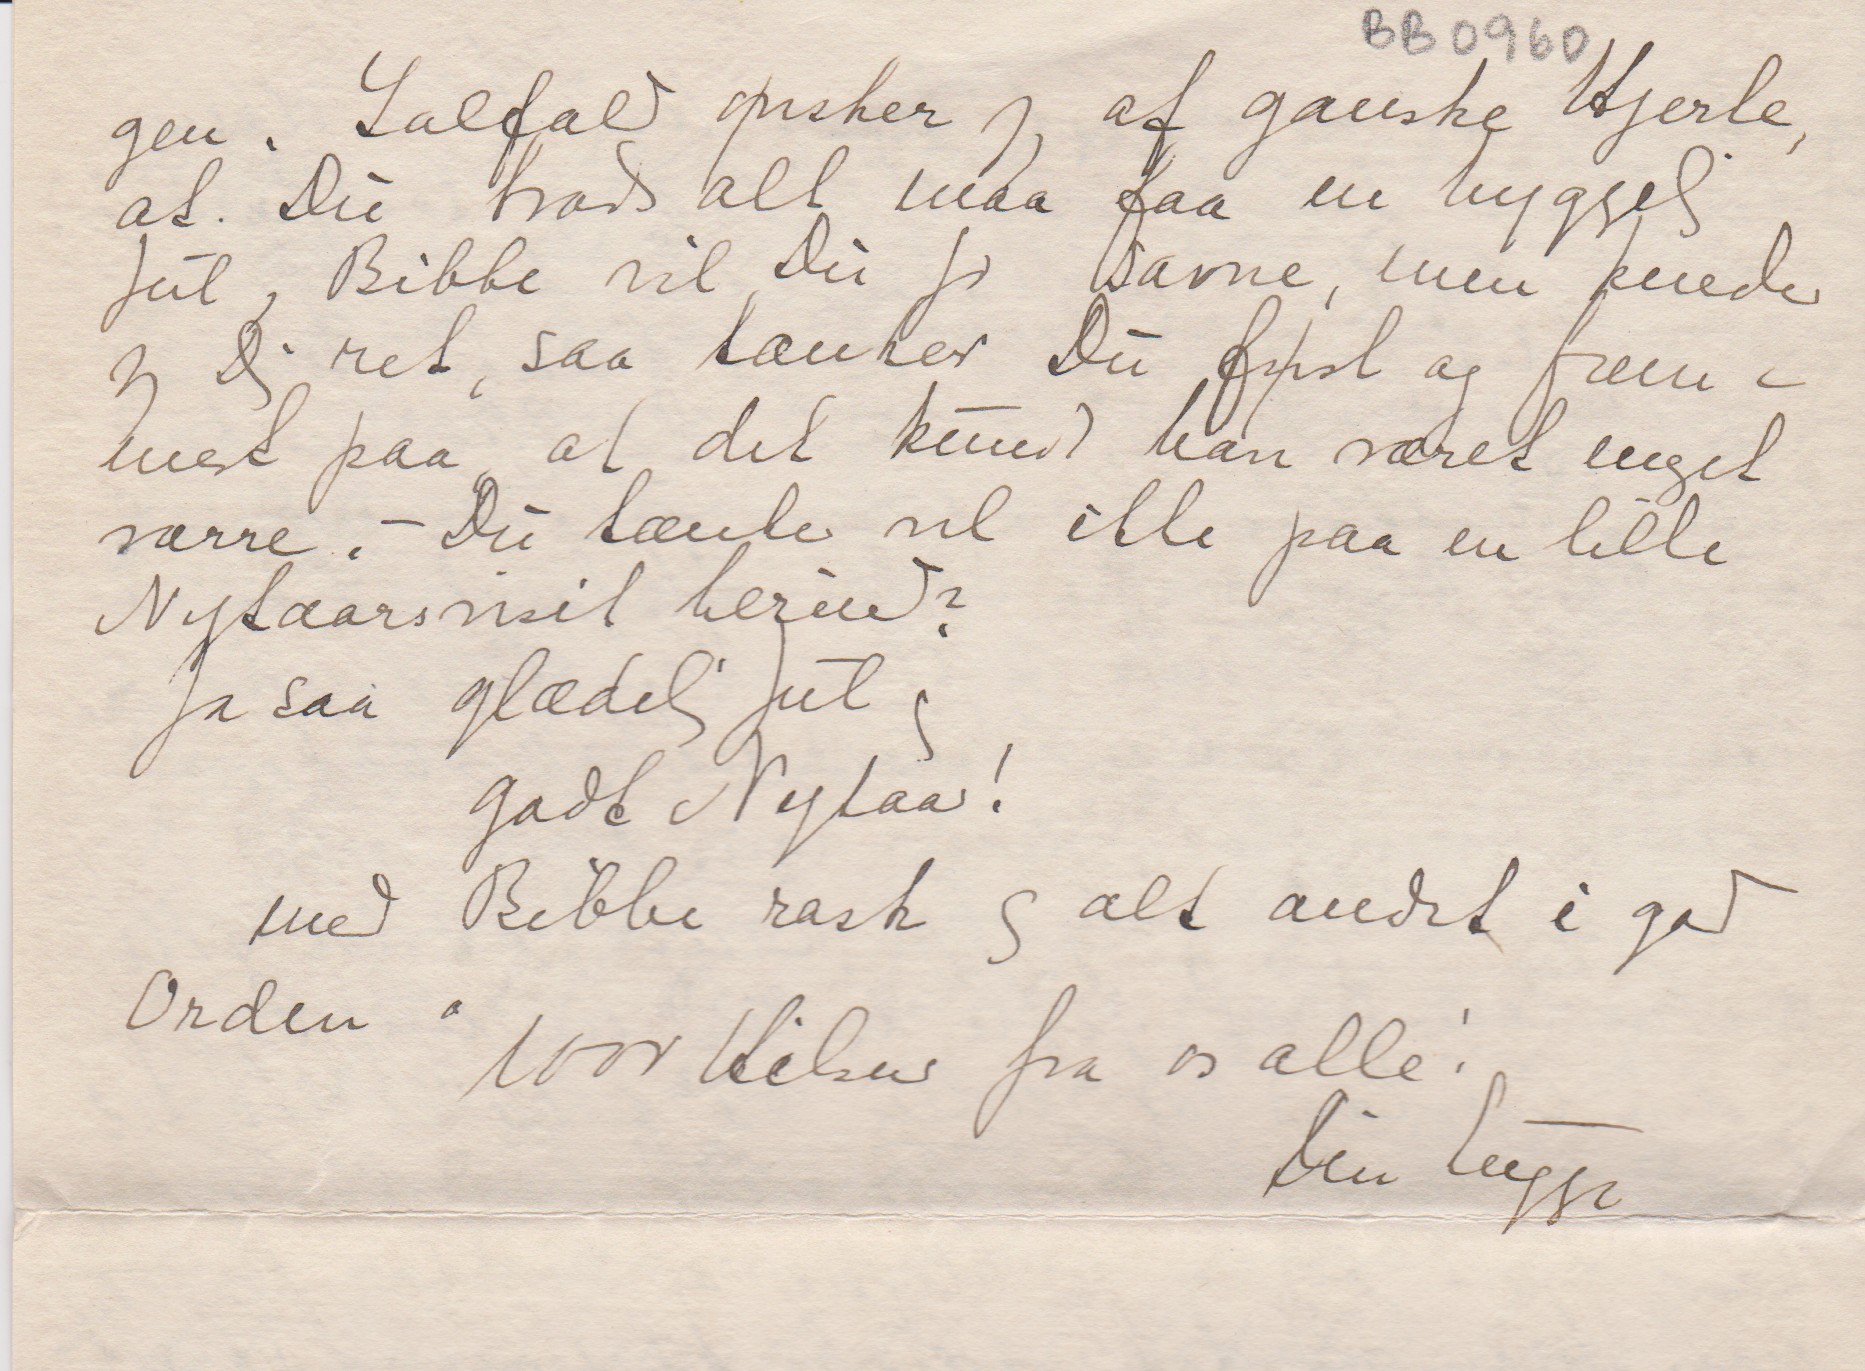 BB0960
gen. Ialfald ønsker jeg af ganske Hjerte,
at Du trods alt maa faa en hyggelig
Jul, Bibbe vil Du jo savne, men kender
jeg Dig ret, saa tænker Du først og frem-
mest paa, at det kunde han været meget
værre. – Du tænker vel ikke paa en lille
Nytaarsvisit herind?
Ja saa glædelig Jul og
godt Nytaar!
med Bibbe rask og alt andet i god
Orden.
1000 Hilsner fra os alle!
Din